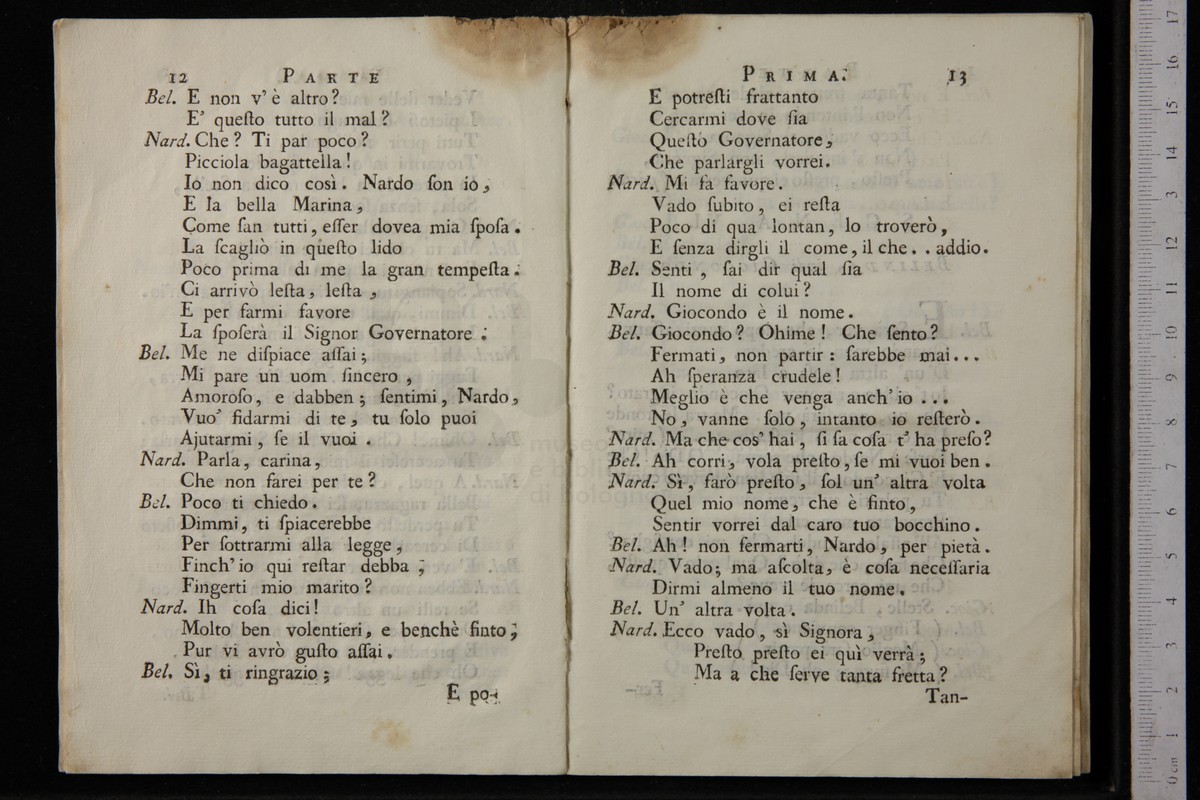 12 PARTE
Bel. E non v' è altro?
E' queſto tutto il mal?
Nard. Che? Ti par poco?
Picciola bagattella!
Io non dico così. Nardo ſon io,
E la bella Marina,
Come ſan tutti, eſſer dovea mia ſpoſa.
La ſcagliò in queſto lido
Poco prima di me la gran tempeſta.
Ci arrivò leſta, leſta,
E per farmi favore
La ſpoſerà il Signor Governatore.
Bel. Me ne diſpiace aſſai;
Mi pare un uom ſincero,
Amoroſo, e dabben; ſentimi, Nardo,
Vuo' fidarmi di te, tu ſolo puoi
Ajutarmi, ſe il vuoi.
Nard. Parla, carina,
Che non farei per te?
Bel. Poco ti chiedo.
Dimmi, ti ſpiacerebbe
Per ſottrarmi alla legge,
Finch' io qui reſtar debba;
Fingerti mio marito?
Nard. Ih coſa dici!
Molto ben volentieri, e benchè finto;
Pur vi avrò guſto aſſai.
Bel. Sì, ti ringrazio;
E po-
PRIMA. 13
E potreſti frattanto
Cercarmi dove ſia
Queſto Governatore,
Che parlargli vorrei.
Nard. Mi fa favore.
Vado ſubito, ei reſta
Poco di qua lontan, lo troverò,
E ſenza dirgli il come, il che. . addio.
Bel. Senti, ſai dir qual ſia
Il nome di colui?
Nard. Giocondo è il nome.
Bel. Giocondo? Ohime! Che ſento?
Fermati, non partir: ſarebbe mai...
Ah ſperanza crudele!
Meglio è che venga anch' io ...
No, vanne ſolo, intanto io reſterò.
Nard. Ma che cos' hai, ſi ſa coſa t' ha preſo?
Bel. Ah corri, vola preſto, ſe mi vuoi ben.
Nard. Sì, farò preſto, ſol un' altra volta
Quel mio nome, che è finto,
Sentir vorrei dal caro tuo bocchino.
Bel. Ah! non fermarti, Nardo, per pietà.
Nard. Vado; ma aſcolta, è coſa neceſſaria
Dirmi almeno il tuo nome.
Bel. Un' altra volta.
Nard. Ecco vado, sì Signora,
Preſto preſto ei quì verrà;
Ma a che ſerve tanta fretta?
Tan-